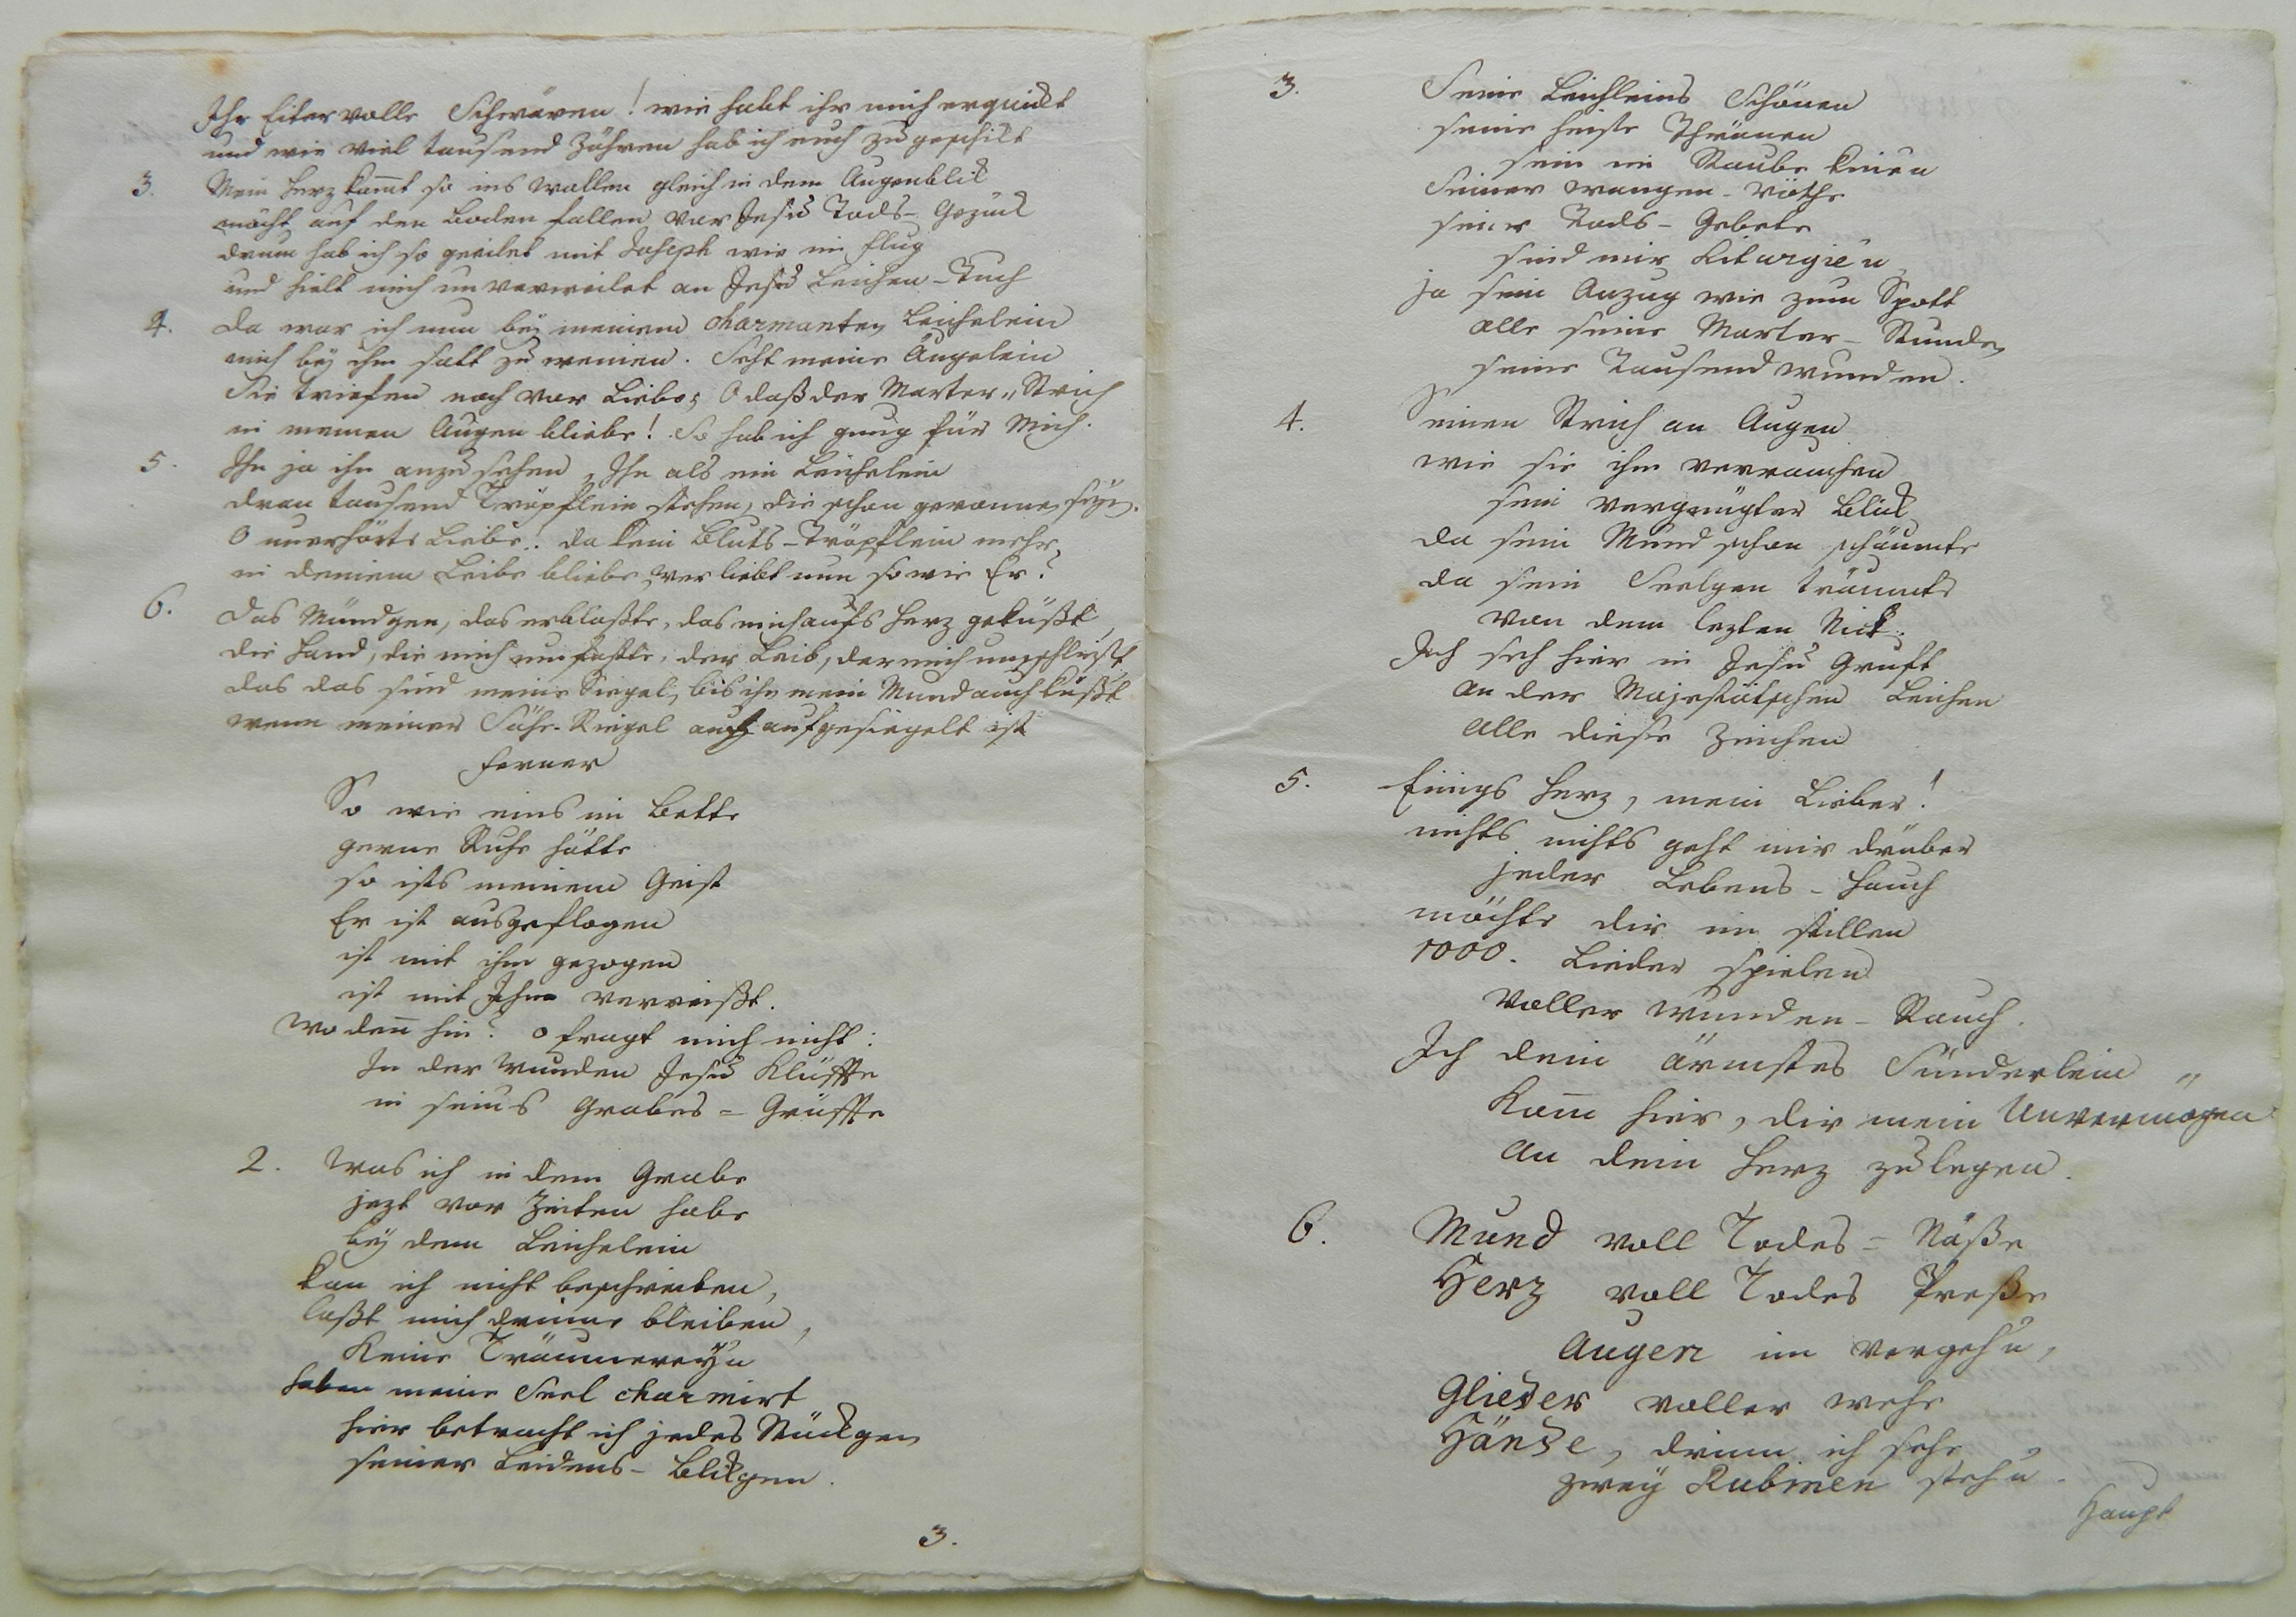 Ihr Eitervolle Schwären! wie habt ihr mich erquickt
und wie viel tausend Zähren hab ich euch zugeschikt
3. Mein Herz kom̄t so ins wallen gleich in dem Augenblik
möcht auf den Boden fallen vor Jesu Tods-Gezük
drum hab ich so geeilet mit Joseph wie im flug
und hielt mich unverweilet an Jesu Leichen-Tuch
4. Da war ich nun beÿ meinem charmanten Leichelein
mich beÿ ihm satt zu weinen. Seht meine Äugelein
Sie triefen noch vor Liebe; O daß der Marter-Strich
in meinen Augen bliebe! So hab ich gnug für Mich.
5. Ihn ja ihn anzusehen, Ihn als ein Leichelein
dran tausend Tröpflein stehen, die schon geronnen seyn.
O unerhörte Liebe! da kein Bluts-Tröpflein mehr,
in deinem Leibe bliebe wer liebt nun so wie Er?
6. Das Mündgen, das erblaßte, das mich aufs Herz geküßt,
die Hand, die mich umfaßte, der Leib, der mich umschließt,
das das sind meine Siegel, bis ihn mein Mund auch küßt
wenn meiner Riegel auch aufgesiegelt ist
ferner
So wie eins im Bette
gerne Ruhe hätte
so ists meinem Geist
Er ist ausgeflogen
ist mit ihm gezogen
ist mit Ihm verreißt.
wo den̄ hin? o fragt mich nicht:
In der wunden Jesu Klüffte
in seines Grabes = Grüffte
2. Was ich in dem Grabe
jezt vor Zeiten habe
beÿ dem Leichelein
kan ich nicht beschreiben,
laßt mich drinne bleiben,
Keine Träumereÿn
haben meine Seel charmirt
hier betracht ich jedes Stückgen
seiner Leidens-Blickgen.
3.
3. Seine Leichleins Schönen
seine heiße Thränen
sein im Staube knien
Seiner wangen-Röthe
seiner Tods-Gebete
sind mir Liturgie'n
ja sein Anzug wie zum Spott
alle seine Marter-Stunden
seine Tausend wunden.
4. Seinen Strich an Augen
wie sie ihm verrauchen
sein vergnügter Blick
da sein Mund schon schäumte
da sein Seelgen träumte
von dem lezten Nick.
Ich seh hier in Jesu Gruft
an der Majestätschen Leichen
alle diese Zeichen
5. Einigs Herz, mein Lieber!
nichts nichts geht mir drüber
jeder Lebens-Hauch
möchte dir im stillen
1000. Lieder spielen
voller wunden-Rauch.
Ich dein ärmstes Sünderlein
Kom̄ hier, dir mein Unvermögen
an dein Herz zu legen.
6. Mund voll Todes = Näße
Herz voll Todes Preße
Augen im vergeh'n,
Glieder voller wehe
Hände, drinn ich sehe
zweÿ Rubinen steh'n.
Haupt